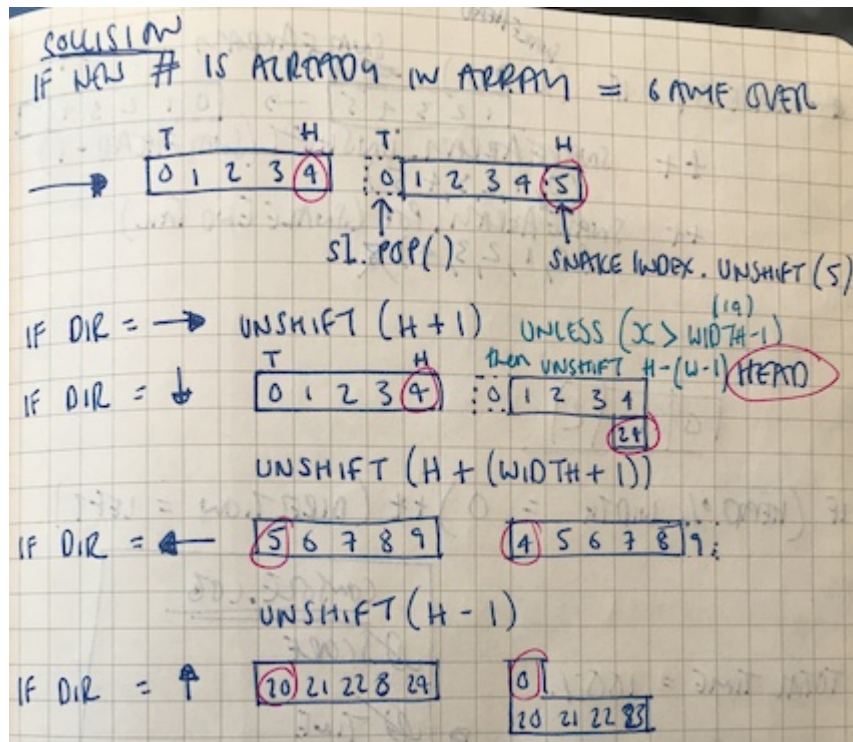 COLLISION
IF NEW # IS ALREADY IN ARRAY = GAME OVER
T H T H
→ 0 1 2 3 4 0 1 2 3 4 5
SI.POP() SNAKE INDEX.UNSHIFT(5)
(19)
IF DIR = → UNSHIFT (H+1) UNLESS (X > WIDTH-1)
then UNSHIFT H-(W-1) HEAD
T H
IF DIR = ↓ 0 1 2 3 4 0 1 2 3 4
24
UNSHIFT (H + (WIDTH+1))
IF DIR = ← 5 6 7 8 9 4 5 6 7 8 9
UNSHIFT (H - 1)
IF DIR = ↑ 20 21 22 23 24 0
20 21 22 23